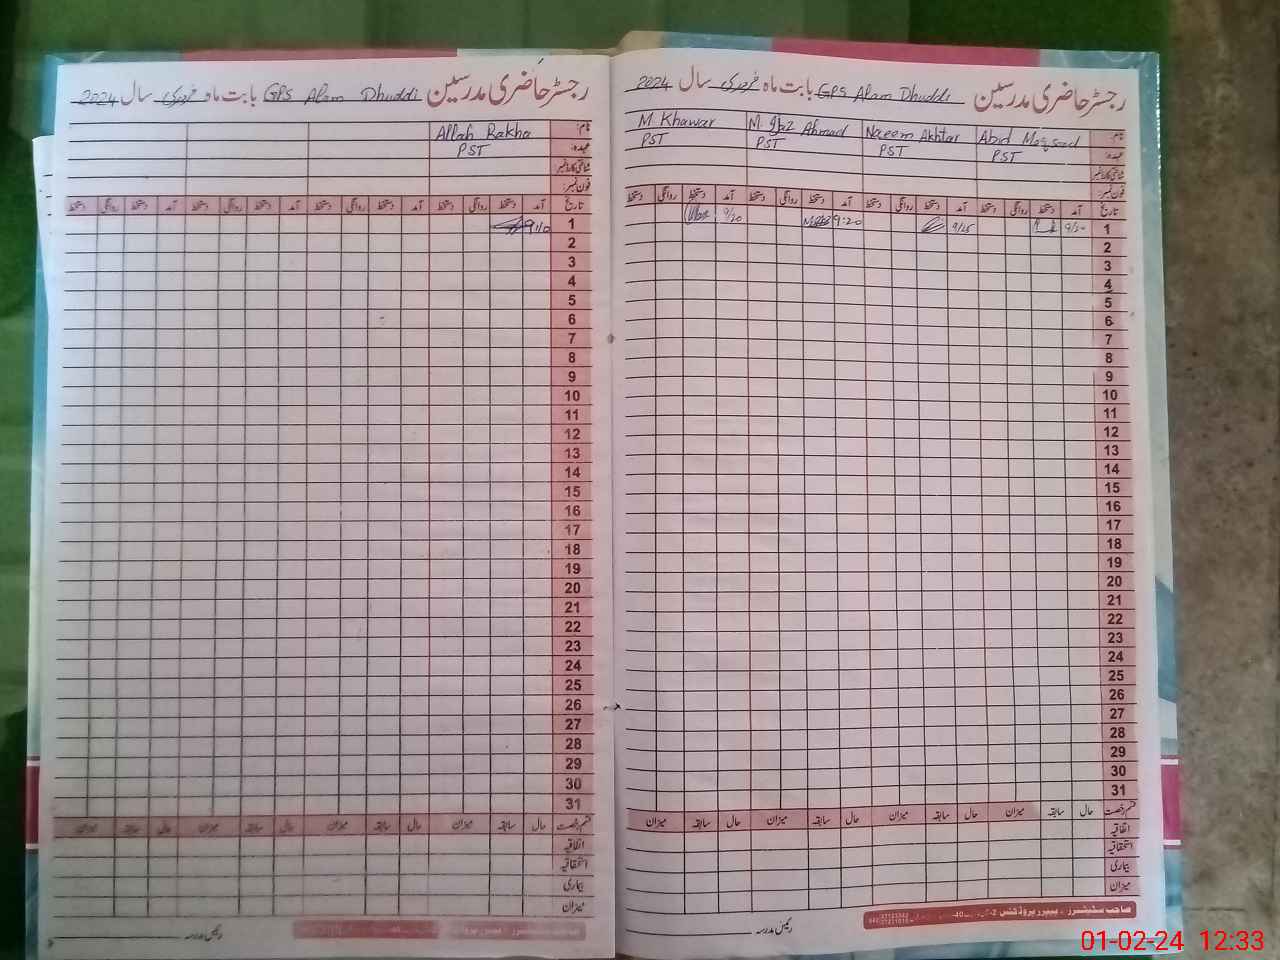 رجسٹر حاضری مدرسین GPS Alam Dhuddi بابت ماہ فروری سال 2024
نام: Abid Maqsood Naeem Akhtar M. Ijaz Ahmad M Khawar
عہدہ: PST PST PST PST
شناختی کارڈ نمبر
فون نمبر:
تاریخ آمد دستخط روانگی دستخط آمد دستخط روانگی دستخط آمد دستخط روانگی دستخط آمد دستخط روانگی دستخط
1 9/20 9/15 9:20 9/20
2
3
4
5
6
7
8
9
10
11
12
13
14
15
16
17
18
19
20
21
22
23
24
25
26
27
28
29
30
31
قسم رخصت حال سابقہ میزان حال سابقہ میزان حال سابقہ میزان حال سابقہ میزان
اتفاقیہ
استحقاقیہ
بیماری
میزان
صاحب سٹیشنرز اینڈ پیپر پروڈکٹس
رئیس مدرسہ
رجسٹر حاضری مدرسین GPS Alam Dhuddi بابت ماہ فروری سال 2024
نام: Allah Rakha
عہدہ: PST
شناختی کارڈ نمبر
فون نمبر:
تاریخ آمد دستخط روانگی دستخط آمد دستخط روانگی دستخط آمد دستخط روانگی دستخط آمد دستخط روانگی دستخط
1 9/10
2
3
4
5
6
7
8
9
10
11
12
13
14
15
16
17
18
19
20
21
22
23
24
25
26
27
28
29
30
31
قسم رخصت حال سابقہ میزان حال سابقہ میزان حال سابقہ میزان حال سابقہ میزان
اتفاقیہ
استحقاقیہ
بیماری
میزان
صاحب سٹیشنرز اینڈ پیپر پروڈکٹس
رئیس مدرسہ
01-02-24 12:33